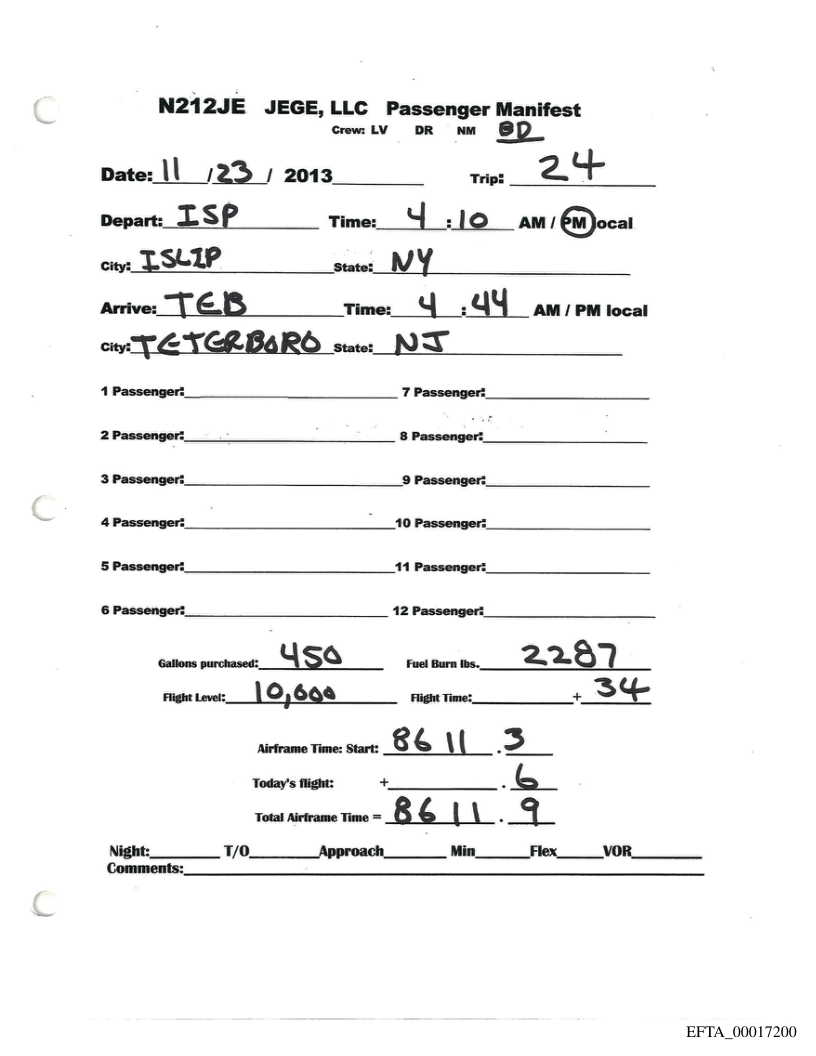 N212JE JEGE, LLC Passenger Manifest
Crew: LV DR NM BD
Date: 11 / 23 / 2013 Trip: 24
Depart: ISP Time: 4 : 10 AM / PM local
City: ISLIP State: NY
Arrive: TEB Time: 4 : 44 AM / PM local
City: TETERBORO State: NJ
1 Passenger: 7 Passenger:
2 Passenger: 8 Passenger:
3 Passenger: 9 Passenger:
4 Passenger: 10 Passenger:
5 Passenger: 11 Passenger:
6 Passenger: 12 Passenger:
Gallons purchased: 450 Fuel Burn lbs. 2287
Flight Level: 10,000 Flight Time: + 34
Airframe Time: Start: 8611 . 3
Today's flight: + . 6
Total Airframe Time = 8611 . 9
Night: T/O Approach Min Flex VOR
Comments:
EFTA_00017200